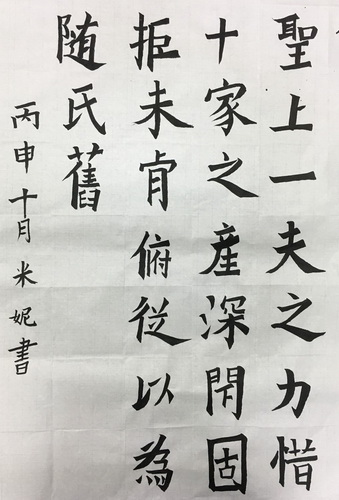 聖上一夫之力惜
十家之産深閇固
拒未肯俯従以為
随氏舊
丙申十月米妮書